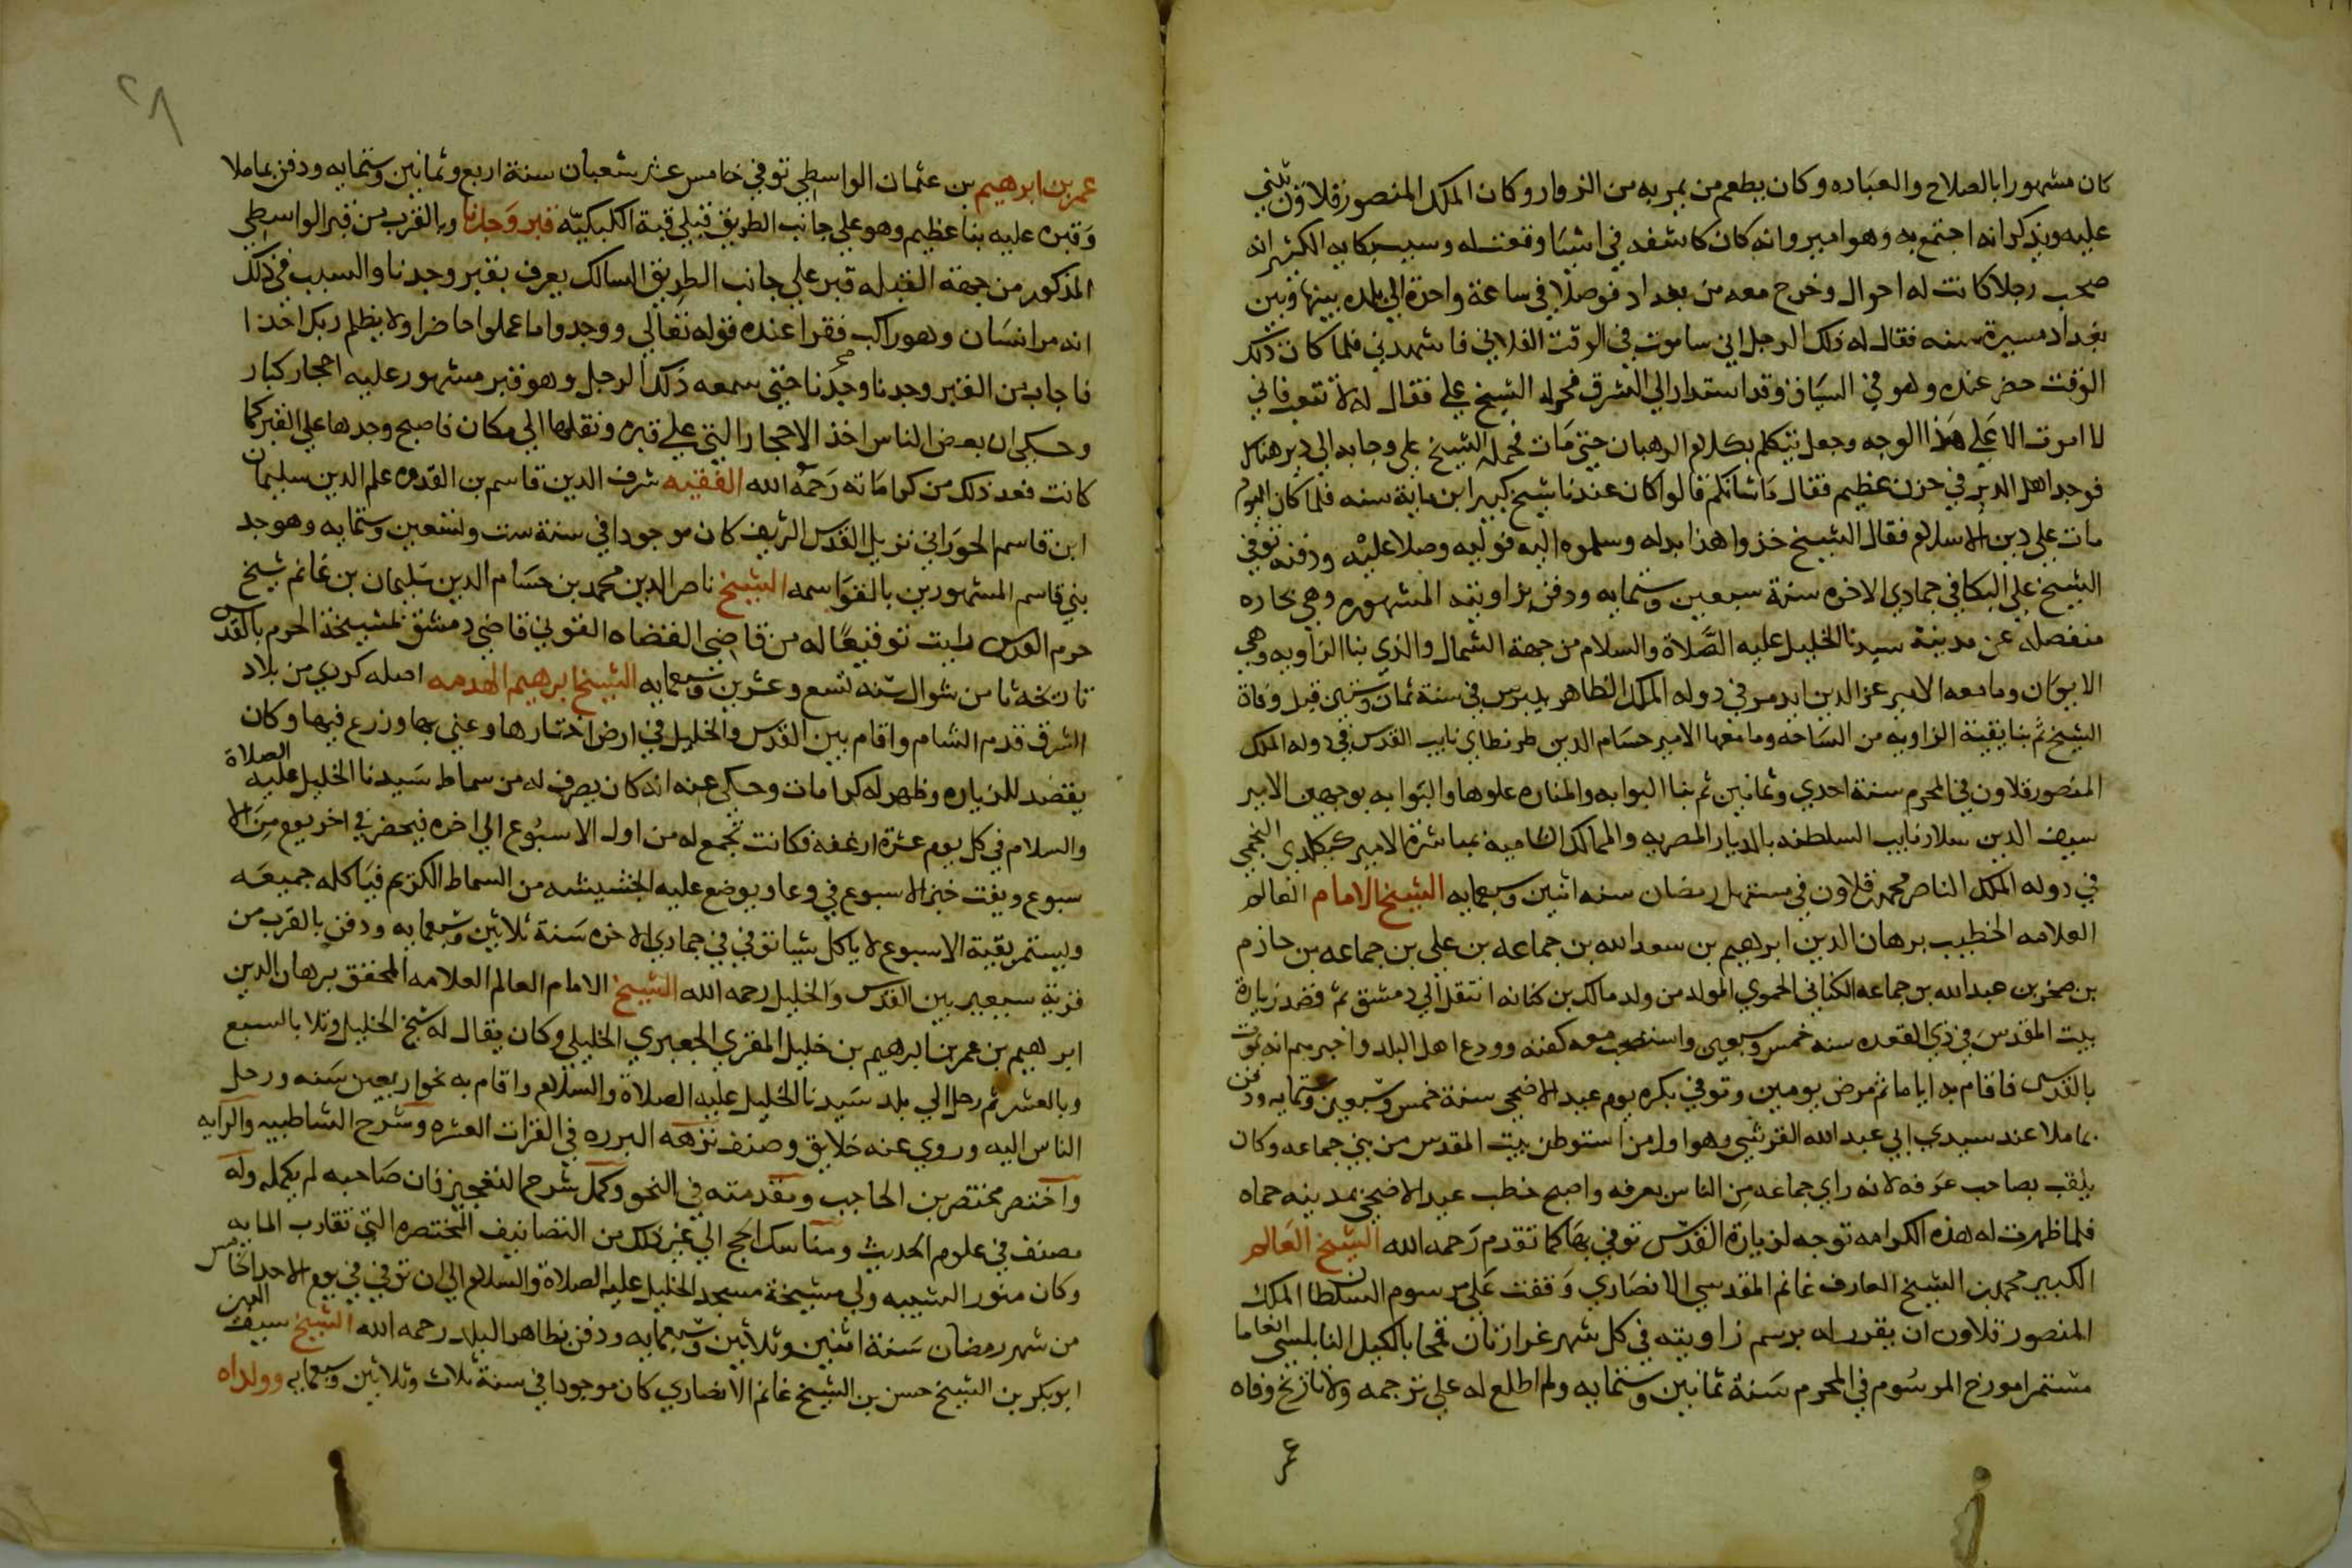 كان مشهورا بالصلاح والعباده وكان يطعم من يمر به من الزوار وكان الملك المنصور قلاوون يثني
عليه ويذكر انه اجتمع به وهو امير وانه كان كاشفه في اشيا وقعت له وسبب بكايه الكثير انه
صحب رجلا كانت له احوال وخرج معه من بغداد فوصلا في ساعة واحدة الي بلده بينها وبين
بغداد مسيرة سنه فقال له ذلك الرجل اني ساموت في الوقت الفلاني فاشهدني فلما كان ذلك
الوقت حضر عنده وهو في السياق وقد استدار الي الشرق فحوله الشيخ علي فقال له لا تتعب فاني
لا اموت الا علي هذا الوجه وجعل يتكلم بكلام الرهبان حتي مات فحمله الشيخ علي وجا به الي دير هناك
فوجد اهل الدير في حزن عظيم فقال ما شانكم قالوا كان عندنا شيخ كبير ابن ماية سنه فلما كان اليوم
مات علي دين الاسلام فقال الشيخ خذوا هذا بدله وسلموه اليه فوليه وصلا عليه ودفنه توفي
الشيخ علي البكا في جمادي الاخره سنة سبعين وستمايه ودفن بزاويته المشهوره وهي بحاره
منفصله عن مدينة سيدنا الخليل عليه الصلاة والسلام من جهة الشمال والذي بنا الزاويه وهي
الايوان وما معه الامير عز الدين ايدمر في دوله الملك الظاهر بيبرس في سنة ثمان وستين قبل وفاة
الشيخ ثم بنا بقية الزاويه من الساحه وما معها الامير حسام الدين طرنطاي نايب القدس في دوله الملك
المنصور قلاون في المحرم سنة احدي وثمانين ثم بنا البوابه والمناره علوها والبوابه بوجهين الامير
سيف الدين سلار نايب السلطنه بالديار المصريه والممالك الشاميه بمباشرة الامير كيكلدي النجمي
في دوله الملك الناصر محمد بن قلاون في مستهل رمضان سنه اثنين وسبعمايه الشيخ الامام العالم
العلامه الخطيب برهان الدين ابرهيم بن سعد الله بن جماعه بن علي بن جماعه بن حازم
بن صخر بن عبد الله بن جماعه الكناني الحموي المولد من ولد مالك بن كنانه انتقل الي دمشق ثم قصد زيارة
بيت المقدس في ذي القعده سنه خمس وسبعين واستصحب معه كفنه وودع اهل البلد واخبرهم انه يموت
بالقدس فاقام به اياما ثم مرض يومين وتوفي بكره يوم عيد الاضحي سنة خمس وسبعين وستمايه ودفن
بماملا عند سيدي ابي عبد الله القرشي وهو اول من استوطن بيت المقدس من بني جماعه وكان
يلقب بصاحب عرفه لانه راي جماعه من الناس بعرفه واصبح خطب عيد الاضحي بمدينه حماه
فلما ظهرت له هذه الكرامه توجه لزيارة القدس توفي بها كما تقدم رحمه الله الشيخ العالم
الكبير محمد بن الشيخ العارف غانم المقدسي الانصاري وقفت علي مرسوم السلطان الملك
المنصور قلاون ان يقرر له برسم زاويته في كل شهر غرارتان قمحا بالكيل النابلسي انعاما
مستمرا مورخ المرسوم في المحرم سنة ثمانين وستمايه ولم اطلع له علي ترجمه ولا تاريخ وفاه
عمر
٢٨
عمر بن ابرهيم بن عثمان الواسطي توفي خامس عشر شعبان سنة اربع وثمانين وستمايه ودفن بماملا
وقبره عليه بنا عظيم وهو علي جانب الطريق قبلي قبة الكبكيه قبر وجدنا وبالقرب من قبر الواسطي
المذكور من جهة القبله قبر علي جانب الطريق السالك يعرف بقبر وجدنا والسبب في ذلك
انه مر انسان وهو راكب فقرا عنده قوله تعالي ووجدوا ما عملوا حاضرا ولا يظلم ربك احدا
فاجاب من القبر وجدنا وجدنا حتي سمعه ذلك الرجل وهو قبر مشهور عليه احجار كبار
وحكي ان بعض الناس اخذ الاحجار التي علي قبره ونقلها الي مكان فاصبح وجدها علي القبر كما
كانت فعد ذلك من كراماته رحمه الله الفقيه شرف الدين قاسم بن القدوه علم الدين سليمان
ابن قاسم الحوراني نزيل القدس الشريف كان موجودا في سنة ست وتسعين وستمايه وهو جد
بني قاسم المشهورين بالقواسمه الشيخ ناصر الدين محمد بن حسام الدين سليمان بن غانم شيخ
حرم القدس رايت توقيعا له من قاضي القضاه القونوي قاضي دمشق بمشيخة الحرم بالقدس
تاريخه ثامن شوال سنه تسع وعشرين وسبعمايه الشيخ ابرهيم الهدمه اصله كردي من بلاد
الشرق قدم الشام واقام بين القدس والخليل في ارض اختارها وعني بها وزرع فيها وكان
يقصد للزياره وظهر له كرامات وحكي عنه انه كان يصرف له من سماط سيدنا الخليل عليه الصلاة
والسلام في كل يوم عشرة ارغفه فكانت تجمع له من اول الاسبوع الي اخره فيحضر في اخر يوم من الا
سبوع ويفت خبز الاسبوع في وعا ويوضع عليه الجشيشه من السماط الكريم فياكله جميعه
ويستمر بقية الاسبوع لا ياكل شيا توفي في جمادي الاخره سنة ثلاثين وسبعمايه ودفن بالقرب من
قرية سعير بين القدس والخليل رحمه الله الشيخ الامام العالم العلامه المحقق برهان الدين
ابرهيم بن عمر بن ابرهيم بن خليل المقري الجعبري الخليلي وكان يقال له شيخ الخليل وتلا بالسبع
وبالعشر ثم رحل الي بلد سيدنا الخليل عليه الصلاة والسلام واقام به نحوا ربعين سنه ورحل
الناس اليه وروي عنه خلايق وصنف نزهه البرره في القرات العشره وشرح الشاطبيه والرايه
واختصر مختصر بن الحاجب ومقدمته في النحو وكمل شرح التعجيز فان صاحبه لم يكمله وله
مصنف في علوم الحديث ومناسك الحج الي غير ذلك من التصانيف المختصره التي تقارب المايه
وكان منور الشيبه ولي مشيخة مسجد الخليل عليه الصلاة والسلام الي ان توفي في يوم الاحد الخامس
من شهر رمضان سنة اثنين وثلاثين وسبعمايه ودفن بظاهر البلد رحمه الله الشيخ سيف الدين
ابو بكر بن الشيخ حسن بن الشيخ غانم الانصاري كان موجودا في سنة ثلاث وثلاثين وسبعمايه وولداه